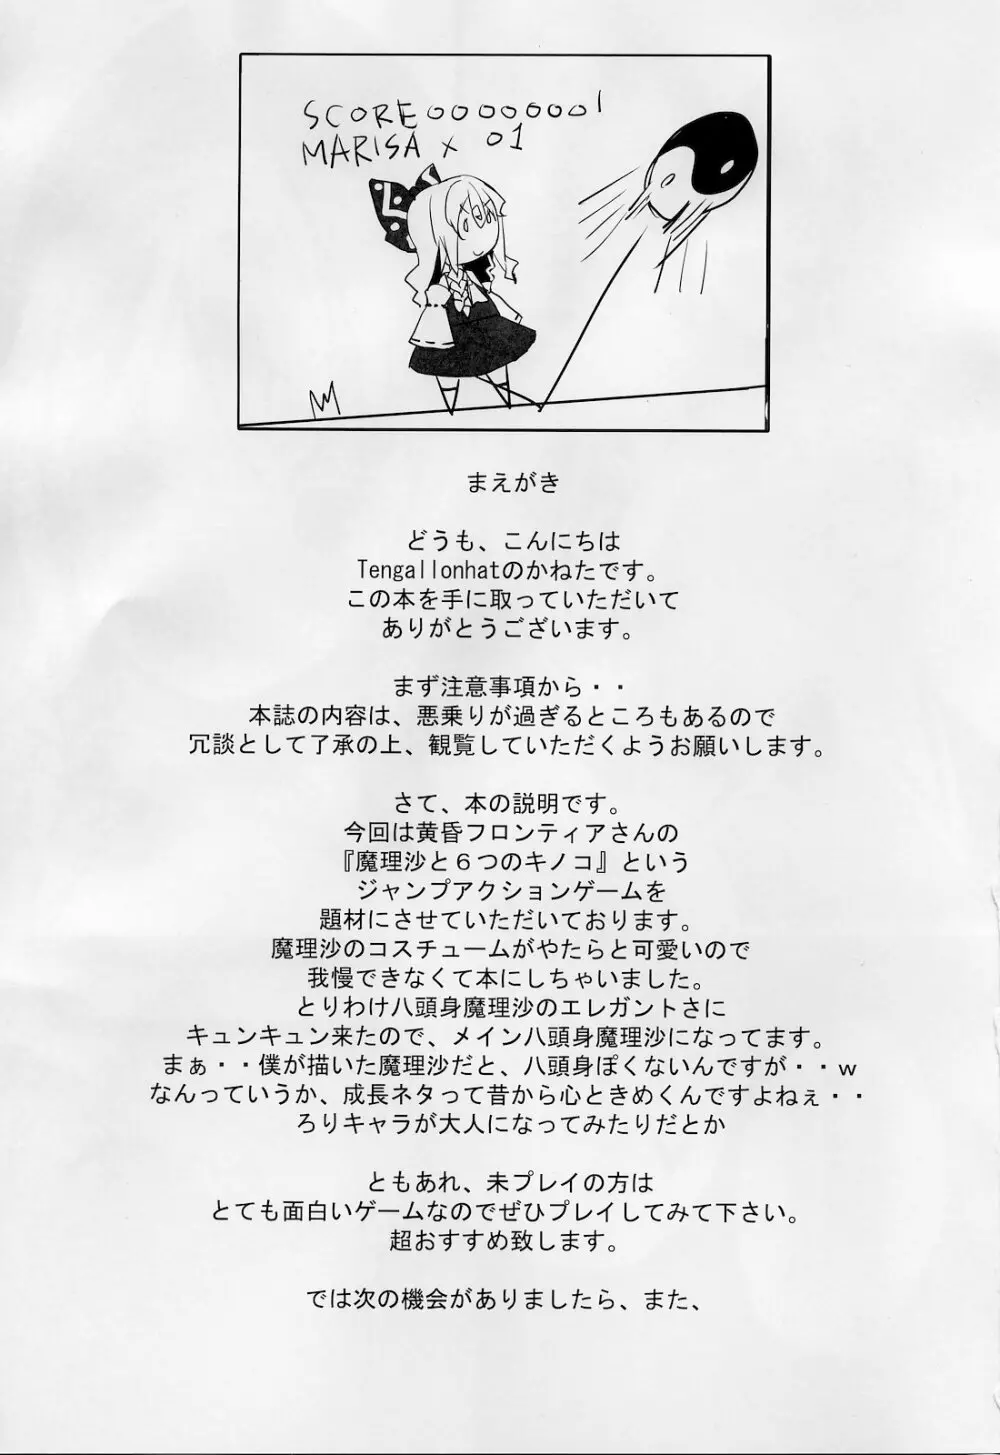 SCORE00000001
MARISA x 01
まえがき
どうも、こんにちは
Tengallonhatのかねたです。
この本を手に取っていただいて
ありがとうございます。
まず注意事項から・・
本誌の内容は、悪乗りが過ぎるところもあるので
冗談として了承の上、観覧していただくようお願いします。
さて、本の説明です。
今回は黄昏フロンティアさんの
『魔理沙と６つのキノコ』という
ジャンプアクションゲームを
題材にさせていただいております。
魔理沙のコスチュームがやたらと可愛いので
我慢できなくて本にしちゃいました。
とりわけ八頭身魔理沙のエレガントさに
キュンキュン来たので、メイン八頭身魔理沙になってます。
まぁ・・僕が描いた魔理沙だと、八頭身ぽくないんですが・・ｗ
なんっていうか、成長ネタって昔から心ときめくんですよねぇ・・
ろりキャラが大人になってみたりだとか
ともあれ、未プレイの方は
とても面白いゲームなのでぜひプレイしてみて下さい。
超おすすめ致します。
では次の機会がありましたら、また、